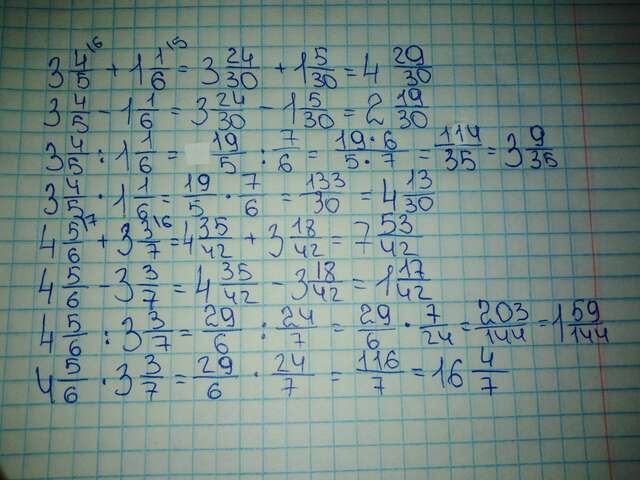 3 4/5 \6 + 1 1/6 \5 = 3 24/30 + 1 5/30 = 4 29/30
3 4/5 - 1 1/6 = 3 24/30 - 1 5/30 = 2 19/30
3 4/5 : 1 1/6 = 19/5 : 7/6 = 19·6/5·7 = 114/35 = 3 9/35
3 4/5 · 1 1/6 = 19/5 · 7/6 = 133/30 = 4 13/30
4 5/6 \7 + 3 3/7 \6 = 4 35/42 + 3 18/42 = 7 53/42
4 5/6 - 3 3/7 = 4 35/42 - 3 18/42 = 1 17/42
4 5/6 : 3 3/7 = 29/6 : 24/7 = 29/6 · 7/24 = 203/144 = 1 59/144
4 5/6 · 3 3/7 = 29/6 · 24/7 = 116/7 = 16 4/7